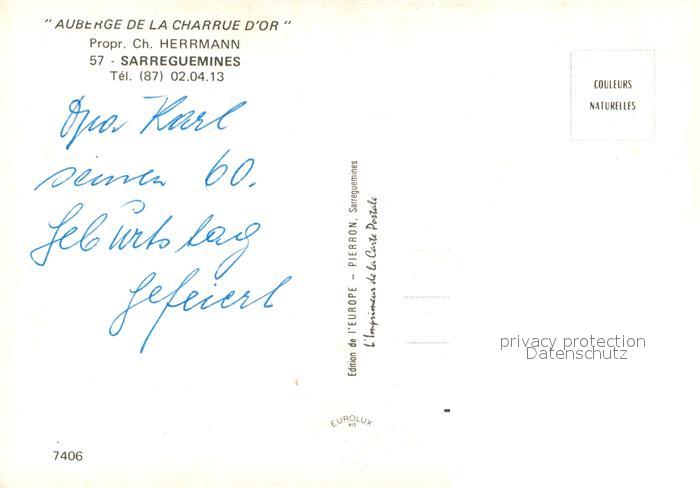 " AUBERGE DE LA CHARRUE D'OR "
Propr. Ch. HERRMANN
57 - SARREGUEMINES
Tél. (87) 02.04.13
Opa Karl
seinen 60.
Geburtstag
gefeiert
COULEURS
NATURELLES
Edition de l'EUROPE - PIERRON, Sarreguemines
L'Imprimeur de la Carte Postale
privacy protection
Datenschutz
EUROLUX
7406